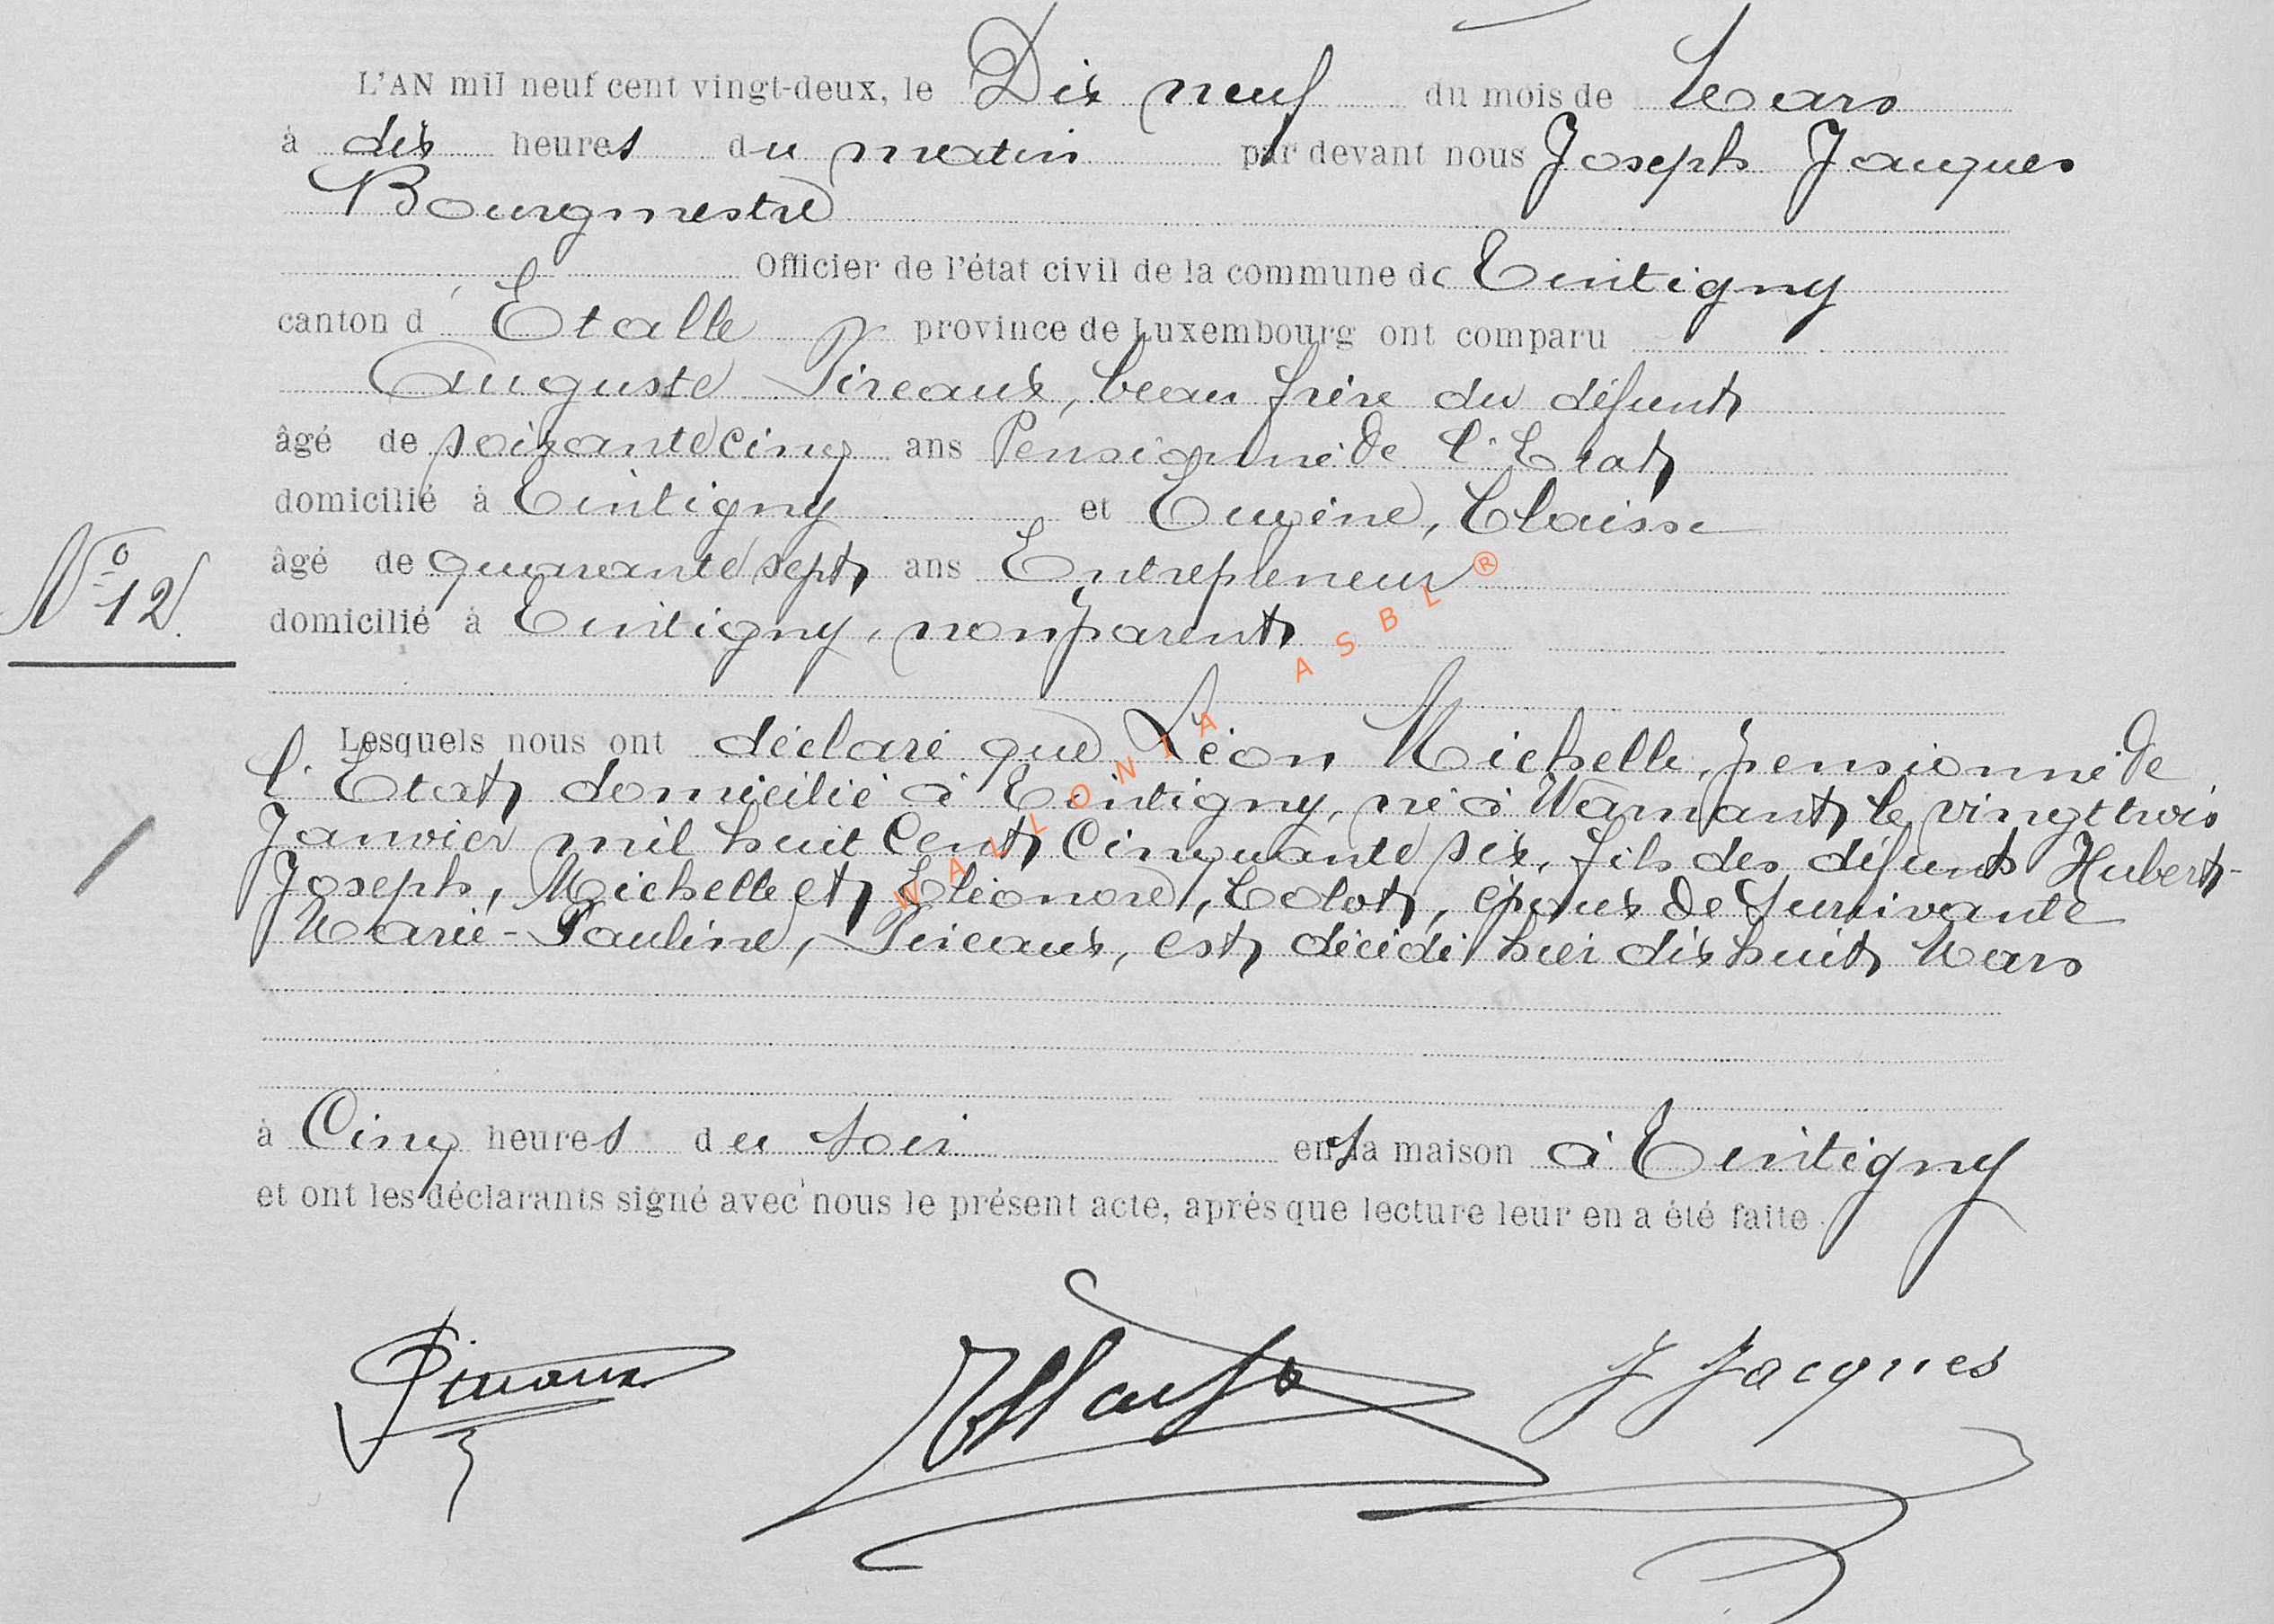 L'AN mil neuf cent vingt-deux, le Dix neuf du mois de Mars
à dix heures du matin par devant nous Joseph Jacques
Bourgmestre
Officier de l'état civil de la commune de Tintigny
canton d'Etalle province de Luxembourg ont comparu
Auguste Pireaux, beau frère du défunt
âgé de soixante cinq ans Pensionné de l'Etat
domicilié à Tintigny et Eugène, Claisse
N° 12.
âgé de quarante sept ans Entrepreneur
domicilié à Tintigny, non parent
Lesquels nous ont déclaré que Léon Michelle, pensionné de
l'Etat domicilié à Tintigny, né à Warnant le vingt trois
Janvier mil huit Cent Cinquante six, fils des défunts Hubert-
Joseph, Michelle et Eléonore, Colot, époux de Survivante
Marie-Pauline, Pireaux, est décédé hier dix huit Mars
à Cinq heures du soir en sa maison à Tintigny
et ont les déclarants signé avec nous le présent acte, après que lecture leur en a été faite.
Pireaux J Jacques
WALLONIA ASBL ®